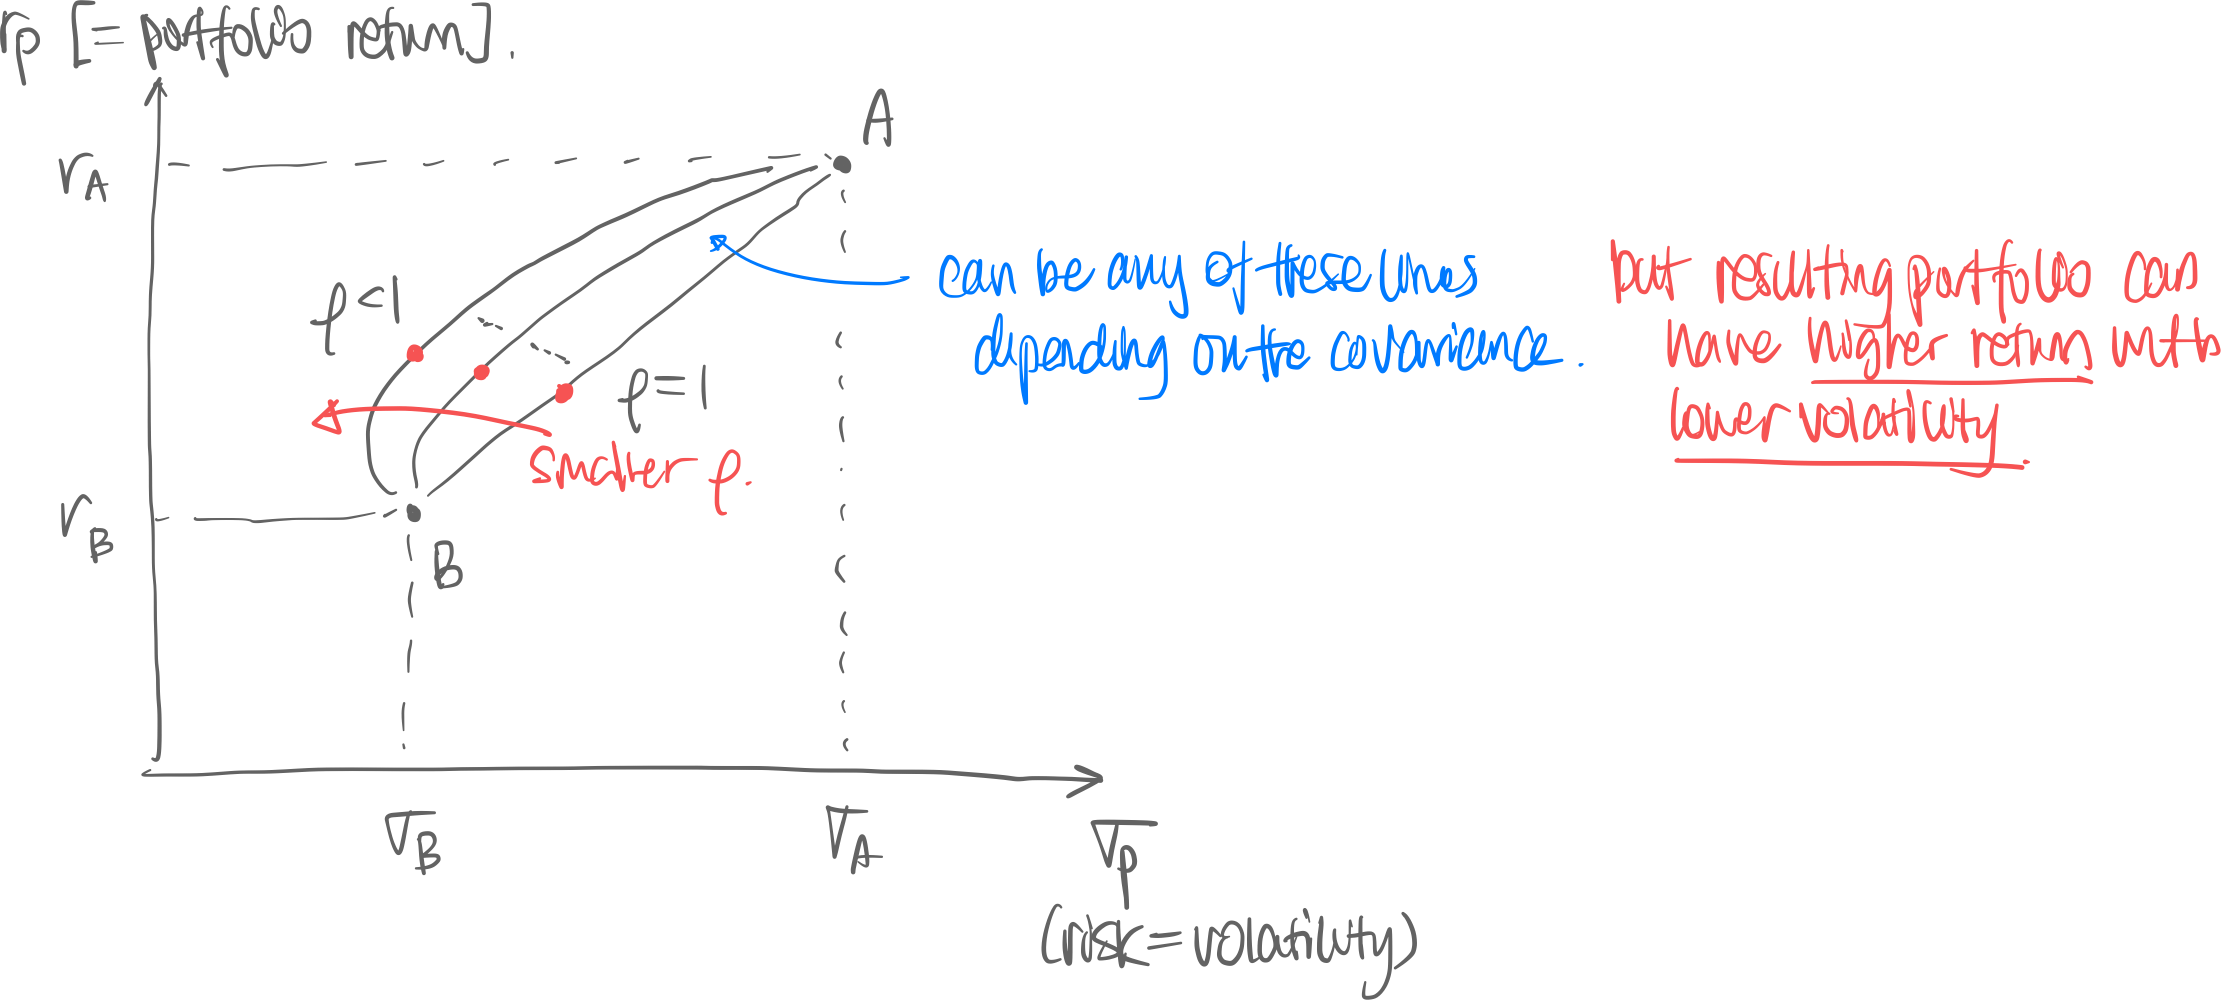 rp [= portfolio return].
A
rA
can be any of these lines
depending on the covariance.
but resulting portfolio can
have higher return with
lower volatility.
ρ<1
ρ=1
smaller ρ.
rB
B
σB
σA
σp
(risk=volatility)